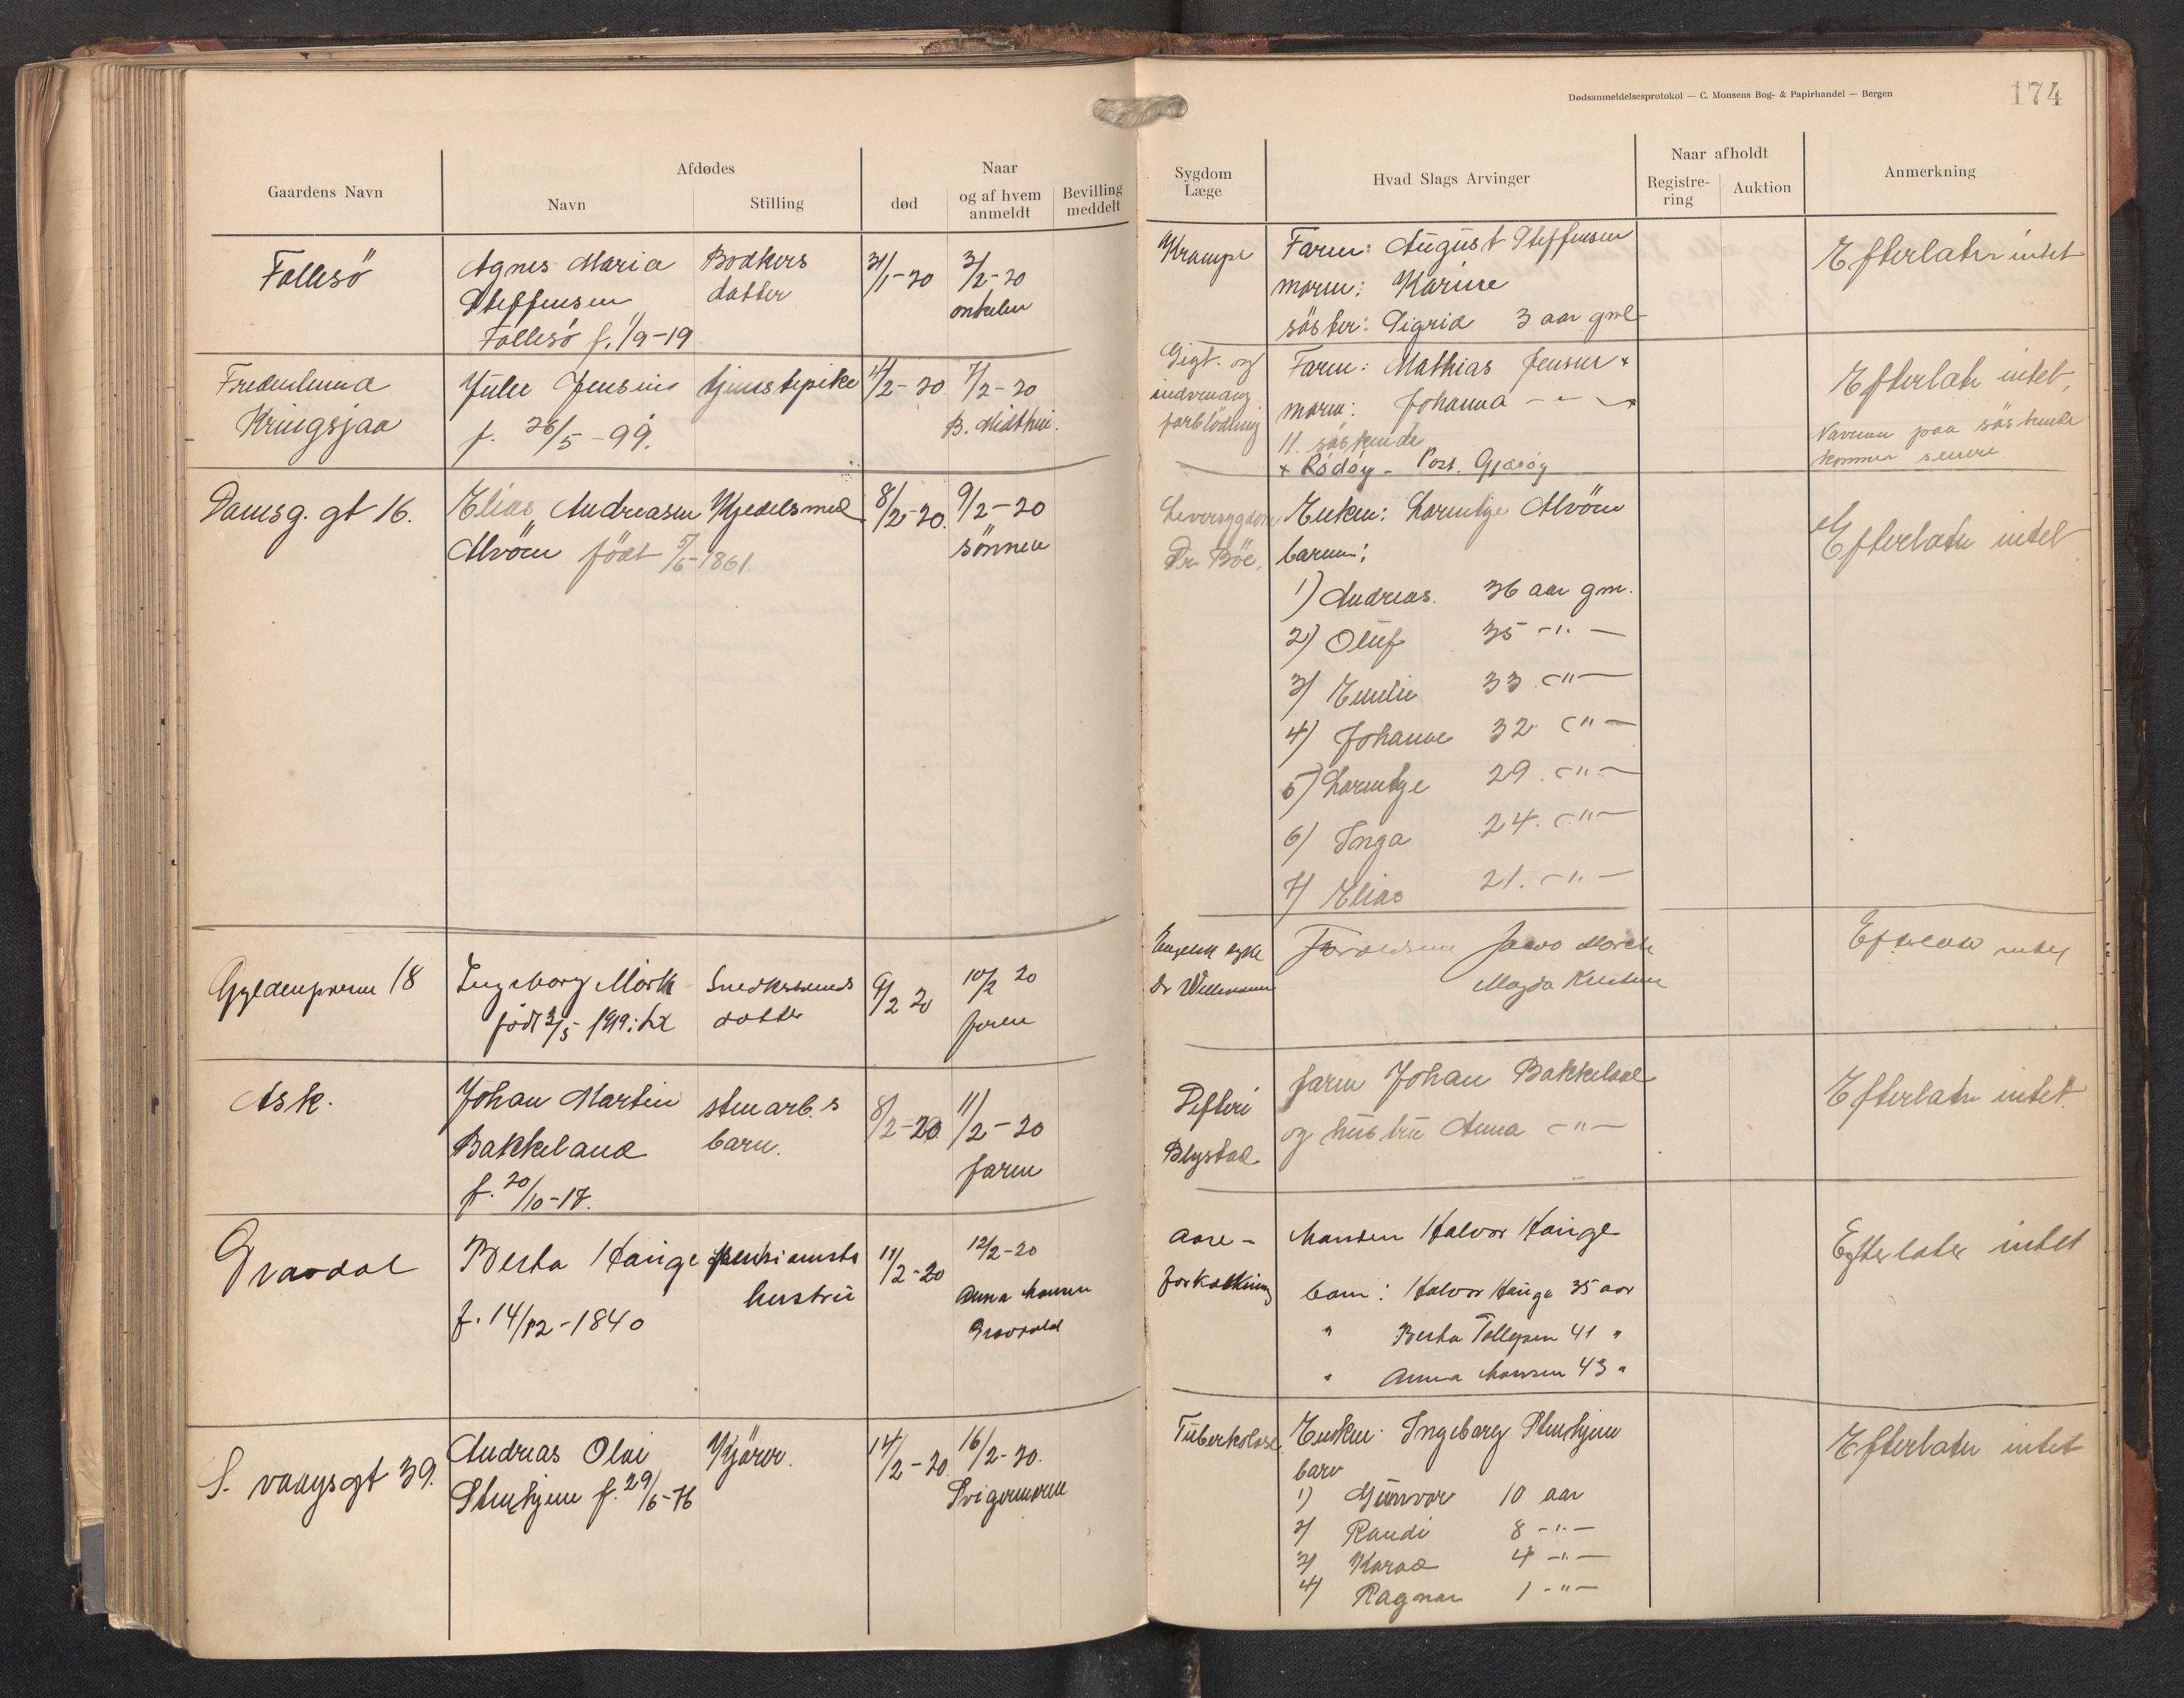 Dødsanmeldelsesprotokol — C. Monsens Bog- & Papirhandel — Bergen
174
Gaardens Navn
Afdødes
Navn
Stilling
Naar
død
og af hvem anmeldt
Bevilling meddelt
Sygdom
Læge
Hvad Slags Arvinger
Naar afholdt
Registre-
ring
Auktion
Anmerkning
Follesö
Agnes Maria
Steffensen
Follesö f. 1/9-19
Bødkers
datter
31/1-20
3/2-20
onkelen
Krampe
Faren: August Steffensen
moren: Karine
söster: Sigrid 3 aar gml
Efterlater intet
Fredenlund
Kringsjaa
Julie Jensine
f. 26/5-99.
tjenestepike
4/2-20
7/2-20
B. Midthun.
Gigt. og
indvendig
forblödning
Faren: Mathias Jensen +
moren: Johanna - " - +
11 söskende
+ Rödöy - Post. Gjæröy
Efterlate intet,
Navnene paa söskende
kommer senere
Damsg. gt 16.
Elias Andreasen
Alvöen födt 5/6-1861.
Kjedelsmed
8/2-20.
9/2-20
sönnen
Leversygdom
Dr Böe,
Enken: Larentze Alvöen
barn:
1) Andreas. 36 aar gm.
2) Oluf 35 -"-
3) Emilie 33 -"-
4) Johanne 32 -"-
5) Larentze 29. -"-
6) Inga 24. -"-
7) Elias 21. -"-
Efterlater intet
Gyldenpræm 18
Ingeborg Mörk
födt 3/5 1919
Snedkersvends
datter
9/2 20
10/2 20
faren
Engelsk syke
Dr
Forældrene
Magda
Efterlater intet
Ask.
Johan Martin
Bakkeland
f. 20/10-17.
stenarb.s
barn.
8/2-20
11/2-20
faren
Difteri
Blystad
faren Johan Bakkeland
og hustru Anna -"-
Efterlater intet.
Gravdal
Berta Hauge
f. 14/12-1840
pensionists
hustru
11/2-20
12/2-20
Anna Monsen
Gravdal
Aare-
forkalkning
Manden Halvor Hauge
barn: Halvor Hauge 35 aar
" Berta Tollefsen 41 "
" Anna Monsen 43 "
Efterlater intet
S. vaagsgt 39.
Andreas Olai
Stenhjem f. 29/6-76
Kjörer.
14/2-20
16/2-20.
Svigermoren
Tuberkolose.
Enken: Ingeborg Stenhjem
barn
1) Gunvor 10 aar
2) Randi 8 -"-
3) Harald 4 -"-
4) Ragnar 1 -"-
Efterlater intet